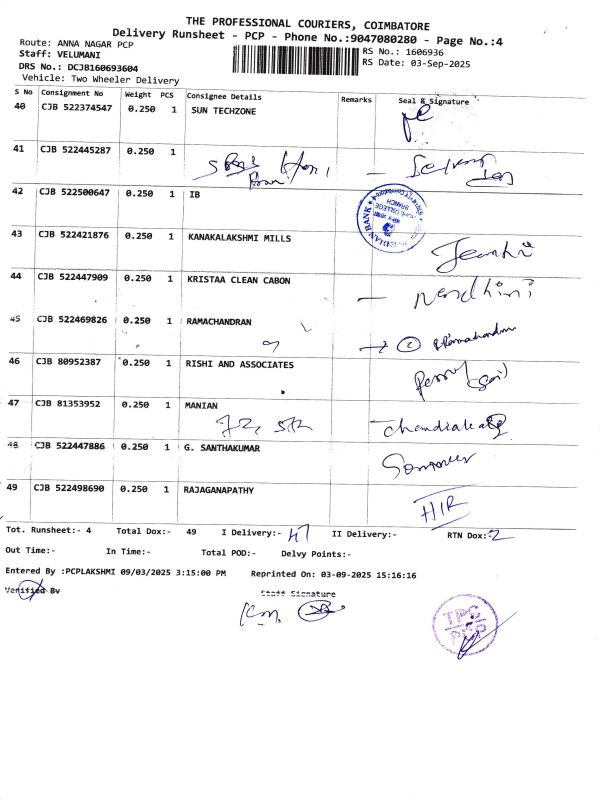 THE PROFESSIONAL COURIERS, COIMBATORE
Delivery Runsheet - PCP - Phone No.:9047080280 - Page No.:4
Route: ANNA NAGAR PCP
Staff: VELUMANI
RS No.: 1606936
DRS No.: DCJB160693604
RS Date: 03-Sep-2025
Vehicle: Two Wheeler Delivery
S No Consignment No Weight PCS Consignee Details Remarks Seal & Signature
40 CJB 522374547 0.250 1 SUN TECHZONE
41 CJB 522445287 0.250 1
42 CJB 522500647 0.250 1 IB
43 CJB 522421876 0.250 1 KANAKALAKSHMI MILLS
44 CJB 522447909 0.250 1 KRISTAA CLEAN CABON Nandhini
45 CJB 522469826 0.250 1 RAMACHANDRAN
46 CJB 80952387 0.250 1 RISHI AND ASSOCIATES
47 CJB 81353952 0.250 1 MANIAN
48 CJB 522447886 0.250 1 G. SANTHAKUMAR
49 CJB 522498690 0.250 1 RAJAGANAPATHY
Tot. Runsheet:- 4 Total Dox:- 49 I Delivery:- 47 II Delivery:- RTN Dox:-2
Out Time:- In Time:- Total POD:- Delvy Points:-
Entered By :PCPLAKSHMI 09/03/2025 3:15:00 PM Reprinted On: 03-09-2025 15:16:16
Verified By Staff Signature
TPC